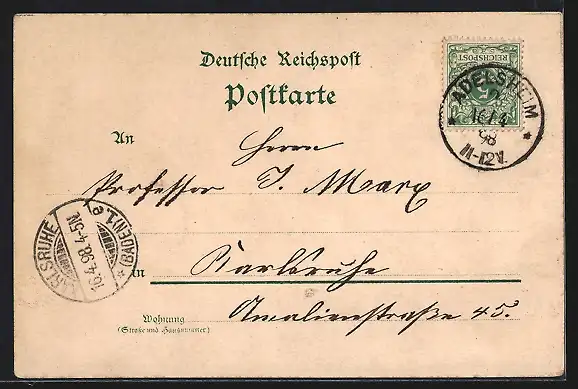 Deutsche Reichspost
Postkarte
REICHSPOST
5
ADELSHEIM
16/4
98
11-12V.
An
Herrn
Professor J. Marx
in
Karlsruhe
Amalienstraße 45.
Wohnung
(Straße und Hausnummer)
KARLSRUHE
16.4.98.4-5N.
(BADEN) 1.a